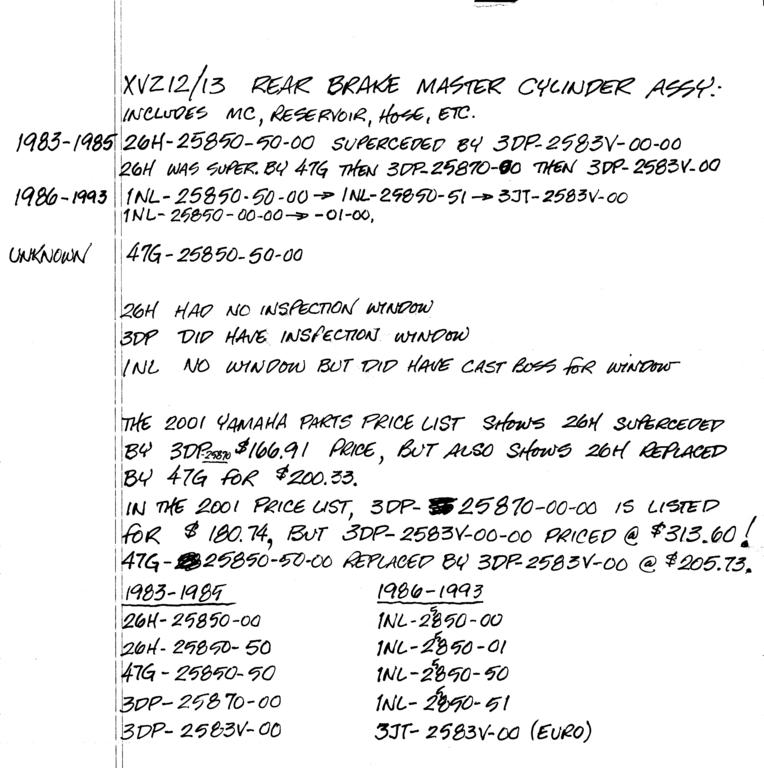 XVZ12/13 REAR BRAKE MASTER CYLINDER ASSY:
INCLUDES MC, RESERVOIR, HOSE, ETC.
1983-1985 26H-25850-50-00 SUPERCEDED BY 3DP-2583V-00-00
26H WAS SUPER. BY 47G THEN 3DP-25870-00 THEN 3DP-2583V-00
1986-1993 1NL-25850-50-00 → 1NL-25850-51 → 3JT-2583V-00
1NL-25850-00-00 → -01-00,
UNKNOWN 47G-25850-50-00
26H HAD NO INSPECTION WINDOW
3DP DID HAVE INSPECTION WINDOW
1NL NO WINDOW BUT DID HAVE CAST BOSS FOR WINDOW
THE 2001 YAMAHA PARTS PRICE LIST SHOWS 26H SUPERCEDED
BY 3DP-25870 $166.91 PRICE, BUT ALSO SHOWS 26H REPLACED
BY 47G FOR $200.33.
IN THE 2001 PRICE LIST, 3DP-25870-00-00 IS LISTED
FOR $180.74, BUT 3DP-2583V-00-00 PRICED @ $313.60!
47G-25850-50-00 REPLACED BY 3DP-2583V-00 @ $205.73.
1983-1985 1986-1993
26H-25850-00 1NL-25850-00
26H-25850-50 1NL-25850-01
47G-25850-50 1NL-25850-50
3DP-25870-00 1NL-25850-51
3DP-2583V-00 3JT-2583V-00 (EURO)